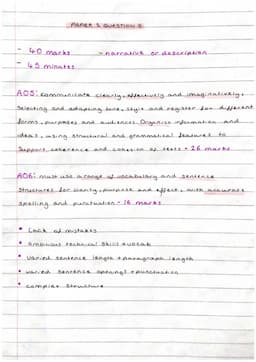 PAPER 1 QUESTION 5
- 40 marks → narrative or description
- 45 minutes
AO5: Communicate clearly, effectively and imaginatively,
selecting and adapting tone, style and register for different
forms, purposes and audiences. Organise information and
ideas, using structural and grammatical features to
support coherence and cohesion of texts - 26 marks
AO6: must use a range of vocabulary and sentence
structures for clarity, purpose and effect, with accurate
spelling and punctuation - 16 marks
• Lack of mistakes
• ambitious technical skills + vocab
• varied sentence length + paragraph length
• varied sentence openings + punctuation
• complex structure